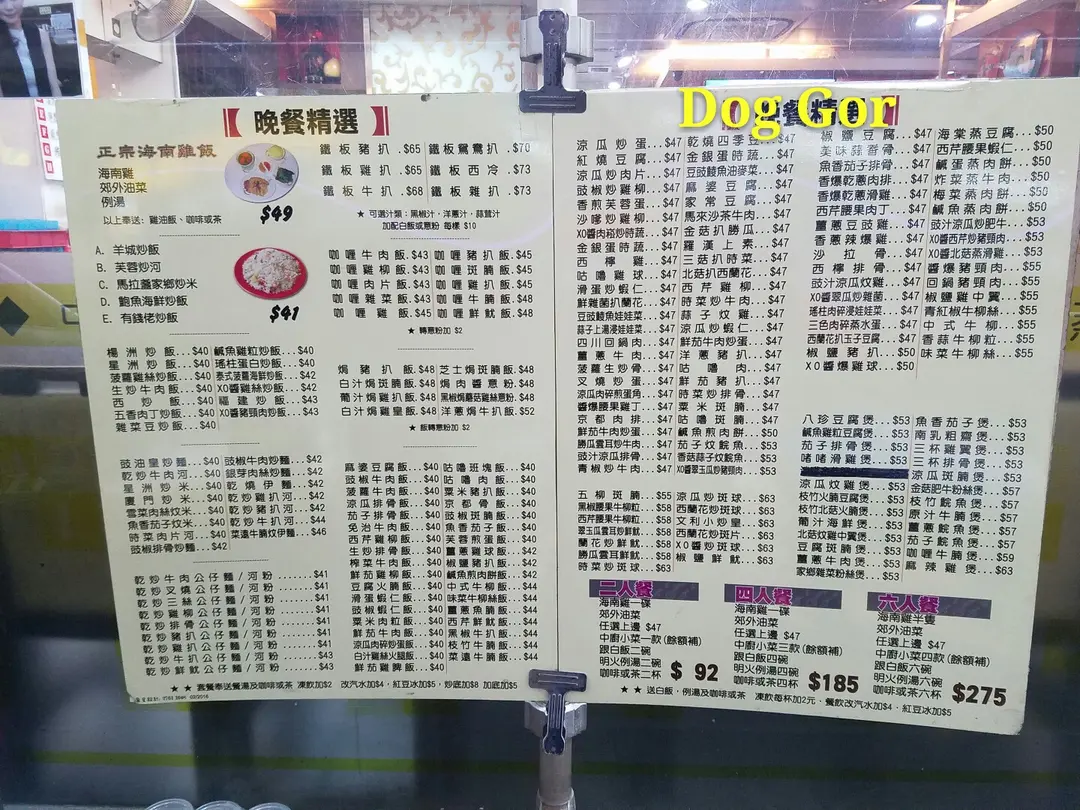 Dog Gor
晚餐精選
正宗海南雞飯
海南雞
郊外油菜
例湯
以上奉送：雞油飯、咖啡或茶
$49
A. 羊城炒飯
B. 芙蓉炒河
C. 馬拉盞家鄉炒米
D. 鮑魚海鮮炒飯
E. 有錢佬炒飯
$41
鐵板豬扒 .$65
鐵板雞扒 .$65
鐵板牛扒 .$68
鐵板鴛鴦扒 .$70
鐵板西冷 ..$73
鐵板雜扒 ..$73
★ 可選汁類：黑椒汁，洋蔥汁，蒜茸汁
加配白飯或意粉 每樣 $10
咖喱牛肉飯.$43
咖喱雞柳飯.$43
咖喱肉片飯.$43
咖喱雜菜飯.$43
咖喱雞飯...$45
咖喱豬扒飯.$45
咖喱斑腩飯.$45
咖喱雞扒飯.$45
咖喱牛腩飯.$48
咖喱鮮魷飯.$48
★ 轉意粉加 $2
楊洲炒飯...$40
星洲炒飯...$40
菠蘿雞絲炒飯...$40
生炒牛肉飯...$40
西炒飯...$40
五香肉丁炒飯...$40
雜菜豆炒飯...$40
鹹魚雞粒炒飯...$40
瑤柱蛋白炒飯...$40
泰式菠蘿海鮮炒飯...$42
XO醬雞絲炒飯...$42
福建炒飯...$43
XO醬豬頸肉炒飯...$43
焗豬扒飯.$48
白汁焗斑腩飯.$48
葡汁焗雞扒飯.$48
白汁焗雞皇飯.$48
芝士焗斑腩飯.$48
焗肉醬意粉.$48
黑椒焗蘑菇雞絲意粉.$48
洋蔥焗牛扒飯.$52
★ 飯轉意粉加 $2
豉油皇炒麵...$40
乾炒牛肉河...$40
星洲炒米...$40
廈門炒米...$40
雪菜肉絲炆米...$40
魚香茄子炆米...$40
時菜肉片河...$40
豉椒排骨炒麵...$42
豉椒牛肉炒麵...$42
銀芽肉絲炒麵...$42
乾燒伊麵...$42
乾炒雞扒河...$42
乾炒豬扒河...$42
乾炒牛扒河...$44
菜遠牛腩炆伊麵...$46
乾炒牛肉公仔麵/河粉.......$41
乾炒叉燒公仔麵/河粉.......$41
乾炒三絲公仔麵/河粉.......$41
乾炒雞柳公仔麵/河粉.......$41
乾炒排骨公仔麵/河粉.......$41
乾炒豬扒公仔麵/河粉.......$41
乾炒雞扒公仔麵/河粉.......$41
乾炒牛扒公仔麵/河粉.......$43
乾炒鮮魷公仔麵/河粉.......$43
麻婆豆腐飯...$40
豉椒牛肉飯...$40
菠蘿牛肉飯...$40
涼瓜排骨飯...$40
茄子排骨飯...$40
免治牛肉飯...$40
西芹雞柳飯...$40
生炒排骨飯...$40
榨菜牛肉飯...$40
鮮茄雞柳飯...$40
豆腐火腩飯...$40
滑蛋蝦仁飯...$40
豉椒蝦仁飯...$40
粟米肉粒飯...$40
鮮茄牛肉飯...$40
涼瓜肉碎炒蛋飯...$40
白汁雞絲火腿飯...$40
鮮茄雞髀飯...$40
咕嚕班塊飯...$40
咕嚕肉飯...$40
粟米豬扒飯...$40
京都骨飯...$40
豉椒斑腩飯...$40
魚香茄子飯...$40
芙蓉煎蛋飯...$40
薑蔥雞球飯...$42
椒鹽豬扒飯...$42
鹹魚煎肉餅飯...$42
中式牛柳飯...$44
味菜牛柳絲飯...$44
薑蔥魚腩飯...$44
西芹鮮魷飯...$44
黑椒牛扒飯...$44
菜遠牛腩飯...$44
★ ★ 套餐奉送餐湯及咖啡或茶 凍飲加$2 改汽水加$4，紅豆冰加$5，炒底加$8 加底加$5
涼瓜炒蛋...$47
紅燒豆腐...$47
涼瓜炒肉片...$47
豉椒炒雞柳...$47
香煎芙蓉蛋...$47
沙嗲炒雞柳...$47
XO醬肉崧炒時蔬...$47
金銀蛋時蔬...$47
西檸雞...$47
咕嚕雞球...$47
滑蛋炒蝦仁...$47
鮮雜菌扒蘭花...$47
豆豉鯪魚娃娃菜...$47
蒜子上湯浸娃娃菜...$47
四川回鍋肉...$47
薑蔥牛肉...$47
菠蘿生炒骨...$47
叉燒炒蛋...$47
涼瓜肉碎煎蛋角...$47
醬爆腰果雞丁...$47
京都肉排...$47
鮮茄牛肉炒蛋...$47
勝瓜雲耳炒牛肉...$47
豉汁涼瓜排骨...$47
青椒炒牛肉...$47
乾燒四季豆...$47
金銀蛋時蔬...$47
豆豉鯪魚油麥菜...$47
麻婆豆腐...$47
家常豆腐...$47
馬來沙茶牛肉...$47
金菇扒勝瓜...$47
羅漢上素...$47
三菇扒時菜...$47
北菇扒西蘭花...$47
西芹雞柳...$47
時菜炒牛肉...$47
蒜子炆雞...$47
涼瓜炒蝦仁...$47
鮮茄牛肉炒蛋...$47
洋蔥豬扒...$47
咕嚕肉...$47
鮮茄豬扒...$47
時菜炒排骨...$47
粟米斑腩...$47
咕嚕斑腩...$47
鹹魚煎肉餅...$50
茄子炆鯇魚...$53
香菇蒜子炆鯇魚...$53
XO醬翠玉瓜炒豬頸肉...$53
椒鹽豆腐...$47
美味蒜香骨...$47
魚香茄子排骨...$47
香爆乾蔥肉排...$47
香爆乾蔥滑雞...$47
西芹腰果肉丁...$47
薑蔥豆豉雞...$47
香蔥辣爆雞...$47
沙拉骨...$47
西檸排骨...$47
豉汁涼瓜炆雞...$47
XO醬翠瓜炒雜菌...$47
瑤柱肉碎浸娃娃菜...$47
三色肉碎蒸水蛋...$47
西蘭花扒玉子豆腐...$47
椒鹽豬扒...$50
XO醬爆雞球...$50
海棠蒸豆腐...$50
西芹腰果蝦仁...$50
鹹蛋蒸肉餅...$50
炸菜蒸牛肉...$50
梅菜蒸肉餅...$50
鹹魚蒸肉餅...$50
豉汁涼瓜炒肥牛...$53
XO醬西芹炒豬頸肉...$53
XO醬北菇蒸滑雞...$53
醬爆豬頸肉...$55
回鍋豬頸肉...$55
椒鹽雞中翼...$55
青紅椒牛柳絲...$55
中式牛柳...$55
香蒜牛柳粒...$55
味菜牛柳絲...$55
五柳斑腩...$55
黑椒腰果牛柳粒...$58
西芹腰果牛柳粒...$58
翠玉瓜雲耳炒鮮魷...$58
蘭花炒鮮魷...$58
勝瓜雲耳鮮魷...$58
時菜炒斑球...$63
涼瓜炒斑球...$63
西蘭花炒斑球...$63
文利小炒皇...$63
西蘭花炒斑片...$63
XO醬炒斑球...$63
椒鹽鮮魷...$63
八珍豆腐煲...$53
鹹魚雞粒豆腐煲...$53
茄子排骨煲...$53
啫啫滑雞煲...$53
涼瓜炆雞煲...$53
枝竹火腩豆腐煲...$53
枝竹北菇火腩煲...$53
葡汁海鮮煲...$53
北菇炆雞中翼煲...$53
豆腐斑腩煲...$53
薑蔥牛肉煲...$53
家鄉雜菜粉絲煲...$53
魚香茄子煲...$53
南乳粗齋煲...$53
三杯雞翼煲...$53
三杯排骨煲...$53
涼瓜斑腩煲...$53
金菇肥牛粉絲煲...$57
枝竹鯇魚煲...$57
原汁牛腩煲...$57
薑蔥鯇魚煲...$57
茄子鯇魚煲...$57
咖喱牛腩煲...$59
麻辣雞煲...$63
二人餐
海南雞一碟
郊外油菜
任選上邊 $47
中廚小菜一款(餘額補)
跟白飯二碗
明火例湯二碗
咖啡或茶二杯
$ 92
四人餐
海南雞一碟
郊外油菜
任選上邊 $47
中廚小菜三款(餘額補)
跟白飯四碗
明火例湯四碗
咖啡或茶四杯
$185
六人餐
海南雞半隻
郊外油菜
任選上邊 $47
中廚小菜四款(餘額補)
跟白飯六碗
明火例湯六碗
咖啡或茶六杯
$275
★ ★ 送白飯，例湯及咖啡或茶 凍飲每杯加2元、餐飲改汽水加$4，紅豆冰加$5